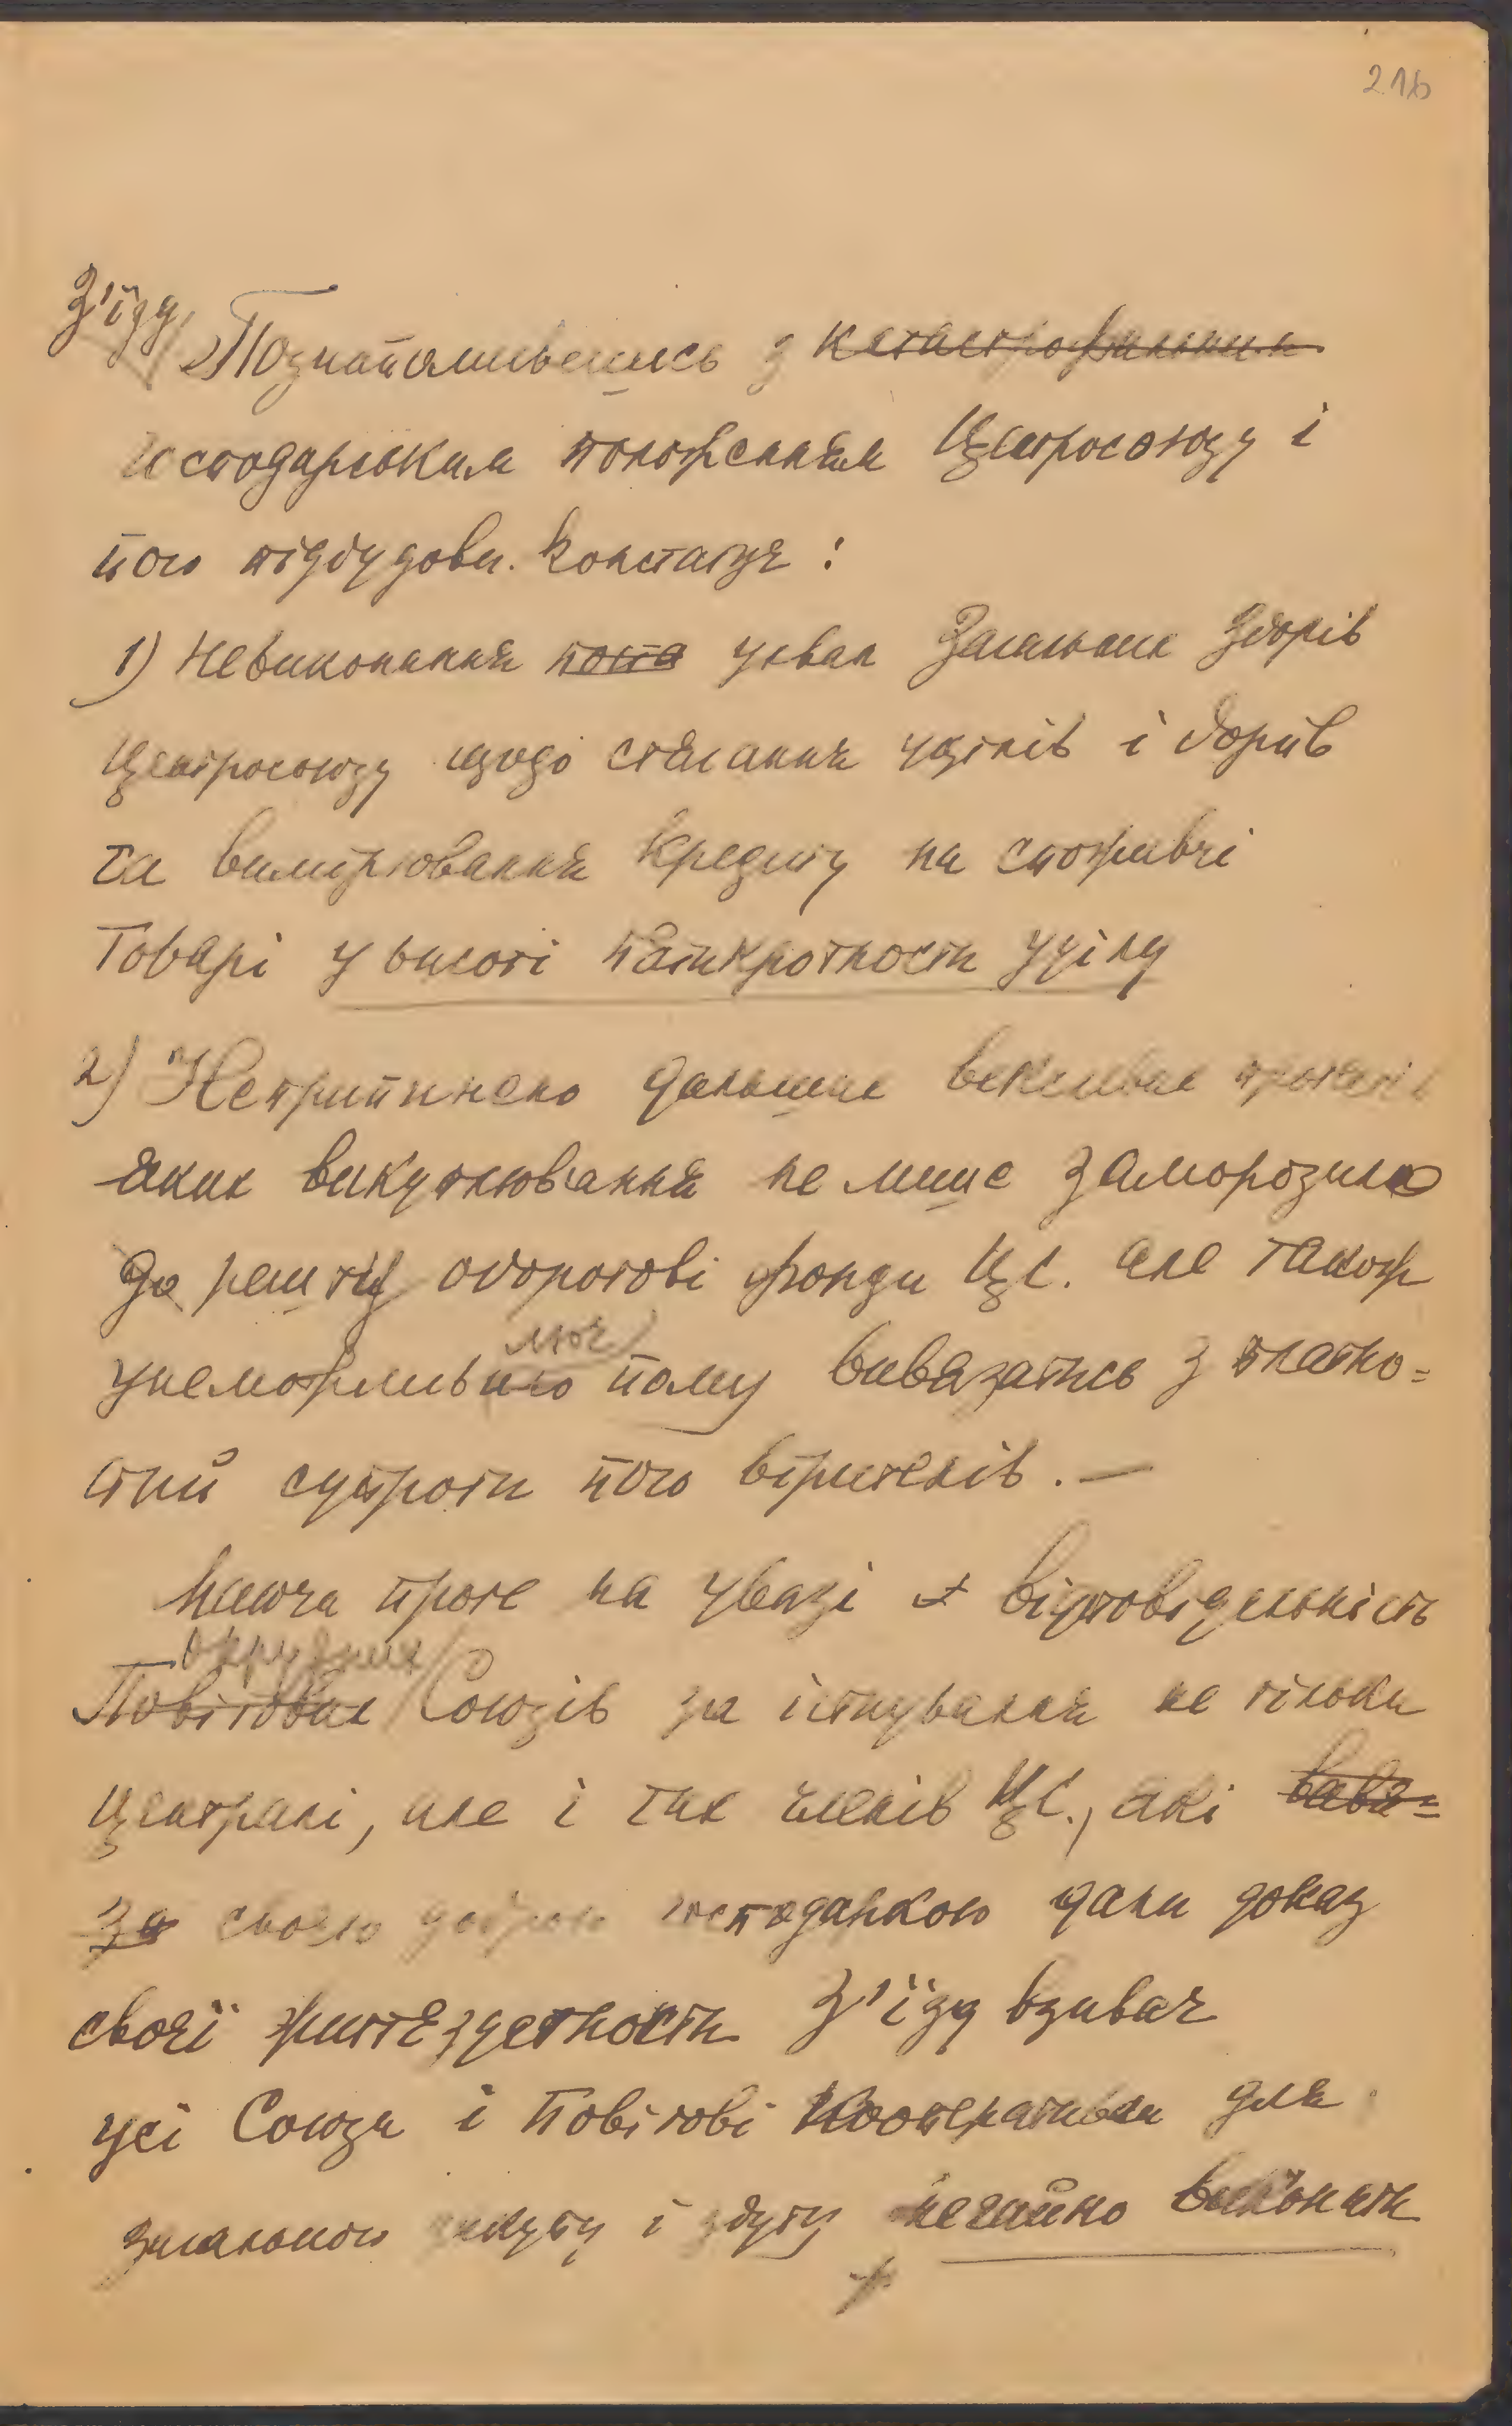 216
З'їзд,
Познайомившись з катастрофальним
господарським положенням Центросоюзу і
його підбудови. Констатує:
1) Невиконання поста ухвал Загальних Зборів
Центросоюзу щодо стягання уділів і боргів
та вимірювання кредиту на споживчі
товарі у висоті пятикротности уділу
2) Неприпинено дальше векслевих протестів
яких викуплювання не лише заморозило
до решти оборотові фонди ЦС. але також
лює
унеможливило йому вивязатись з платно=
стий супроти його вірителів. —
Маюча проте на увазі відповідельність
окружних
Повітових Союзів за істнування не тільки
Централі, але і тих членів ЦС., які вивя=
за своєю доброю господаркою дали доказ
своєї життєздетности З'їзд взиває
усі Союзи і Повітові Кооперативи для
загального закупу і збуту негайно виконати